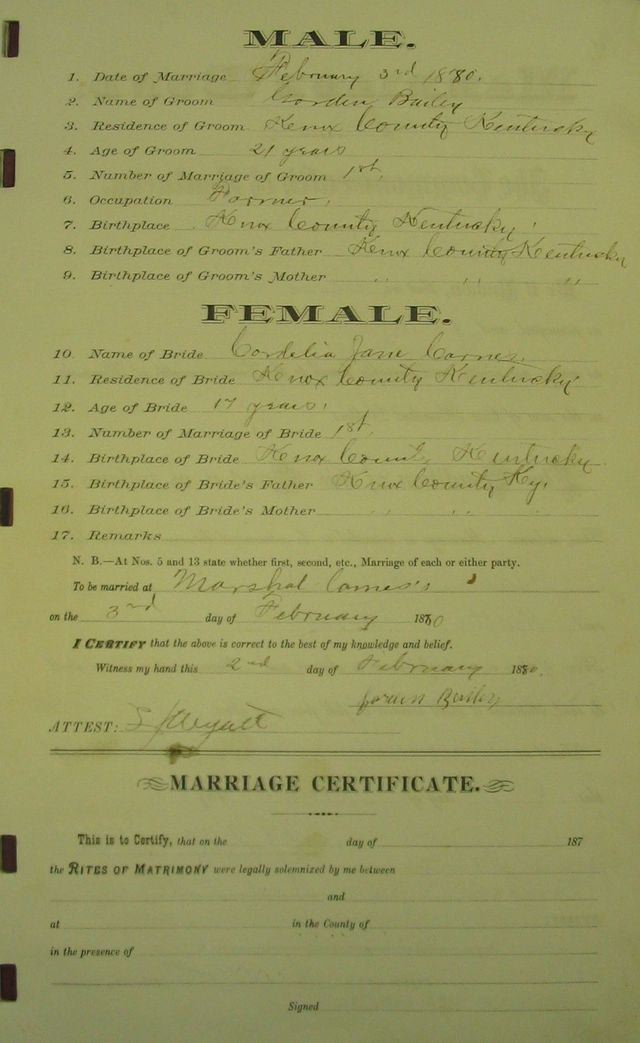 MALE.
1. Date of Marriage February 3rd 1880.
2. Name of Groom Gorden Bailey
3. Residence of Groom Knox County Kentucky
4. Age of Groom 21 years
5. Number of Marriage of Groom 1st.
6. Occupation Farmer.
7. Birthplace Knox County Kentucky.
8. Birthplace of Groom's Father Knox County Kentucky
9. Birthplace of Groom's Mother " " "
FEMALE.
10. Name of Bride Cordelia Jane Carnes.
11. Residence of Bride Knox County Kentucky
12. Age of Bride 17 years.
13. Number of Marriage of Bride 1st.
14. Birthplace of Bride Knox County Kentucky
15. Birthplace of Bride's Father Knox County Ky.
16. Birthplace of Bride's Mother " " "
17. Remarks
N. B.—At Nos. 5 and 13 state whether first, second, etc., Marriage of each or either party.
To be married at Marshal Carnes's
on the 3rd day of February 1880
I CERTIFY that the above is correct to the best of my knowledge and belief.
Witness my hand this 2nd day of February 1880.
Bailey
ATTEST:
MARRIAGE CERTIFICATE.
This is to Certify, that on the day of 187
the RITES OF MATRIMONY were legally solemnized by me between
and
at in the County of
in the presence of
Signed